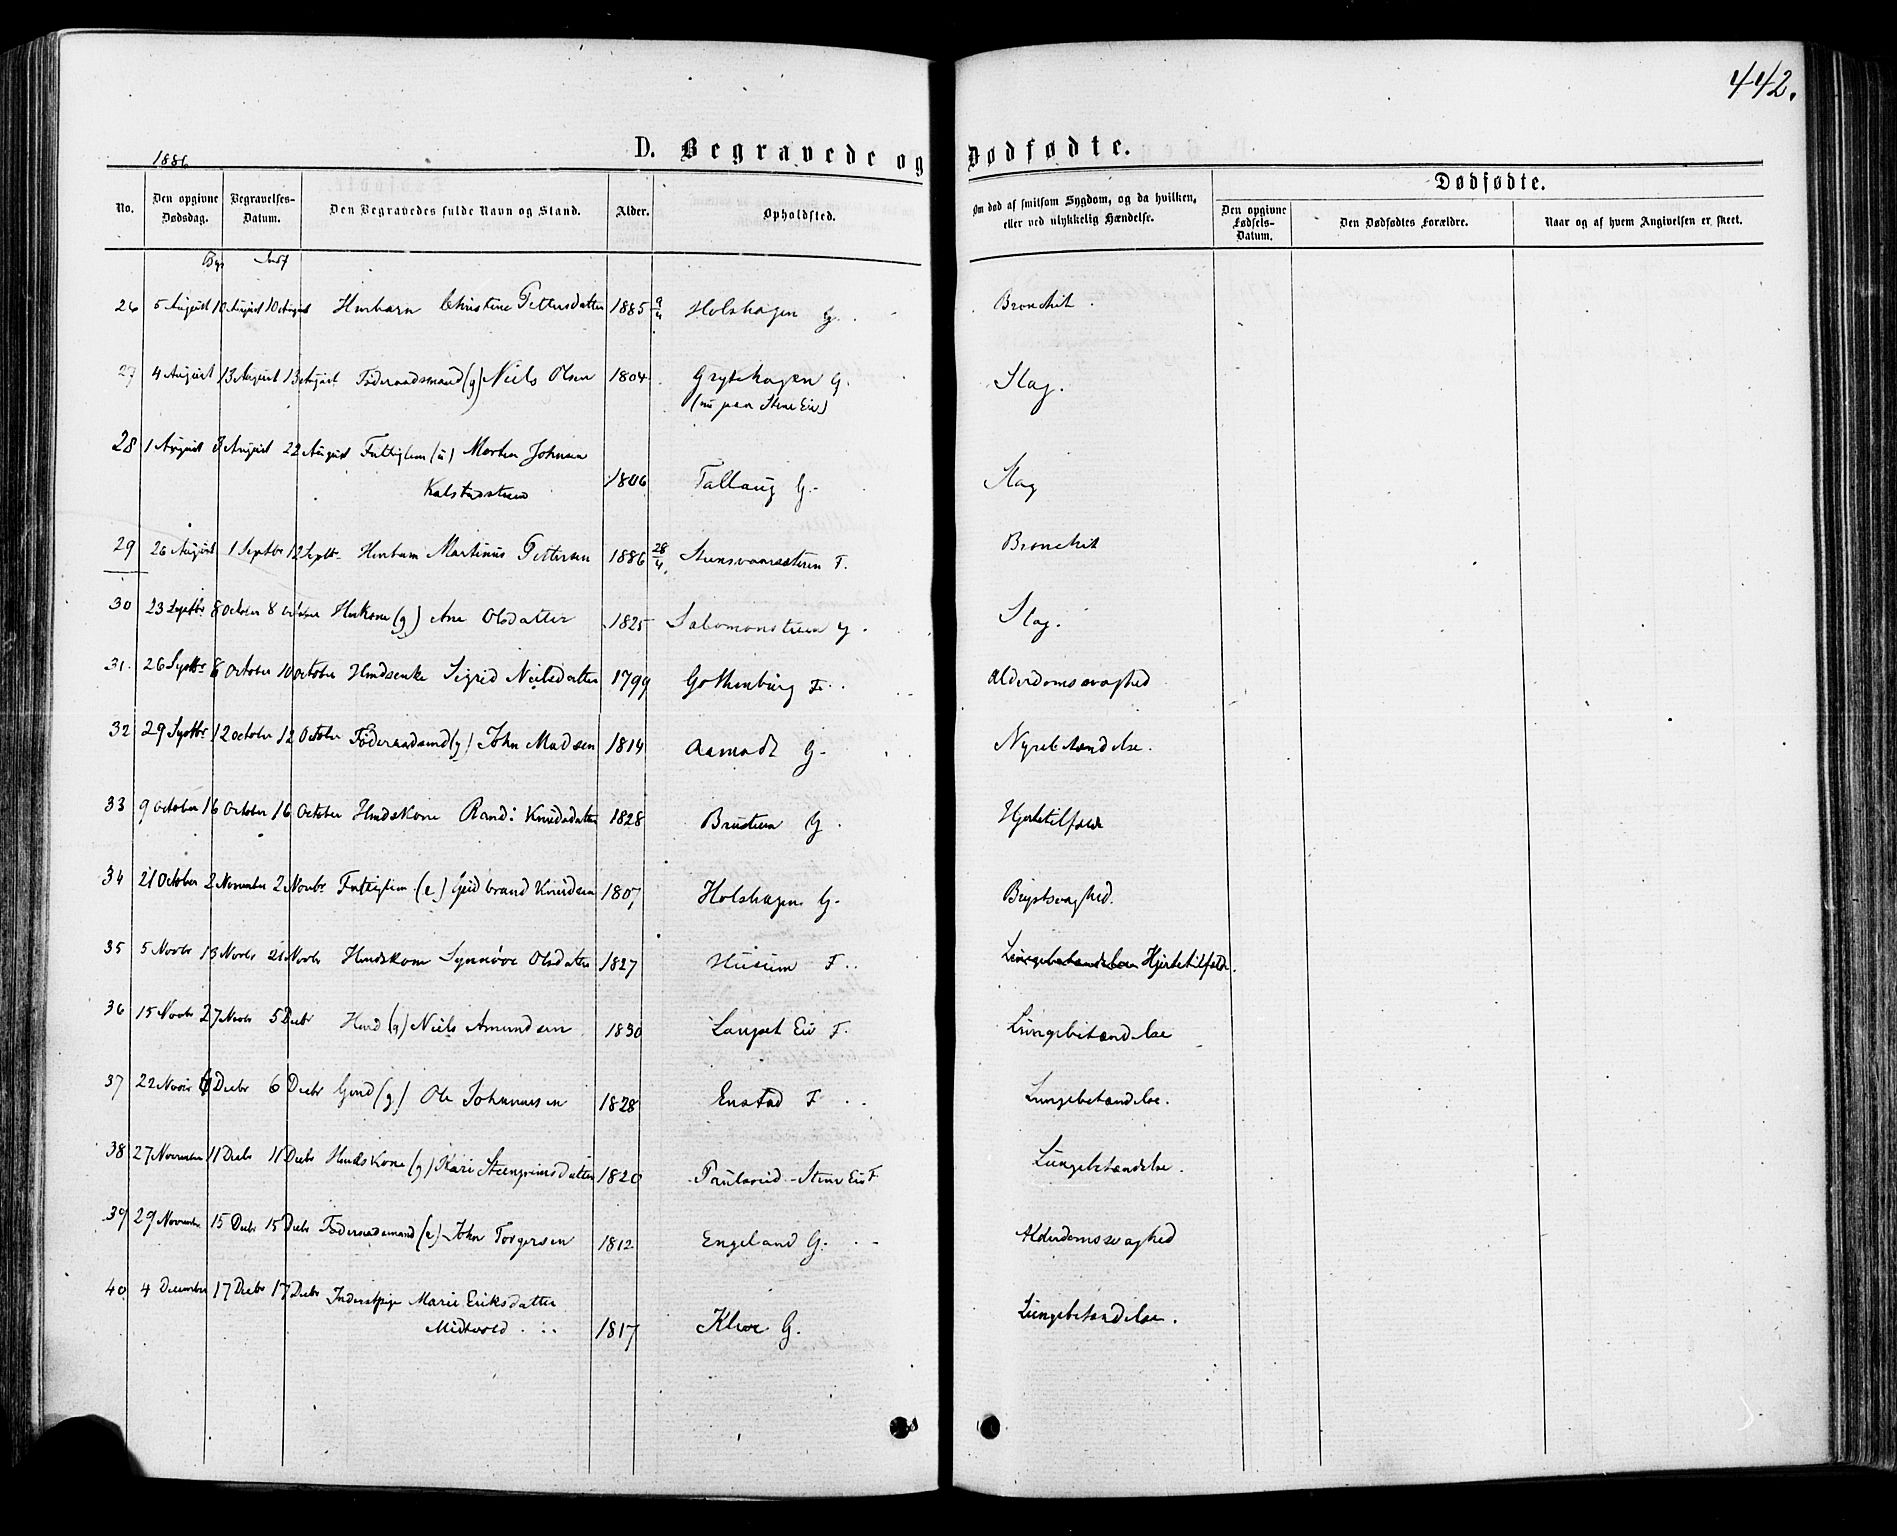 442.
1886
D. Begravede og Dødfødte.
No.
Den opgivne Dødsdag.
Begravelses-Datum.
Den Begravedes fulde Navn og Stand.
Alder.
Opholdsted.
Om død af smitsom Sygdom, og da hvilken, eller ved ulykkelig Hændelse.
Dødfødte.
Den opgivne Fødsels-Datum.
Den Dødfødtes Forældre.
Naar og af hvem Angivelsen er skeet.
26 5 August 10 August 10 August Christine Pettersdatter 1885 9/4 Holshagen G. Bronchit.
27 4 August 13 August 13 August Føderaadsmand (g) Niels Olsen 1804 Grytehagen G. Slag.
(nu paa Stene Eie)
28 1 August 8 August 22 August Fattiglem (u) Morten Johnsen
1806 Tallaug G. Slag
29 26 August 1 Septbr 12 Septbr Martinus Pettersen 1886 28/4 F. Bronchit
30 23 Septbr 8 October 8 October Ane Olsdatter 1825 Slag.
31. 26 Septbr 8 October 10 October Sigrid Nielsdatter 1799 Gothenborg F. Alderdomssvaghed
32 29 Septbr 12 October 12 October Føderaadsmd (g) John Madsen 1814 Aamodt G. Nyrebetændelse.
33 9 October 16 October 16 October Hmdskone Randi Knudsdatter 1828 Brusteen G. Hjertetilfælde
34 21 October 2 November 2 Novbr Fattiglem (e) Gudbrand Knudsen 1807 Holshagen G. Brystsvaghed.
35 5 Novbr 13 Novbr 21 Novbr Hmdskone Synnøve Olsdatter 1827 Husum F. Hjertetilfælde.
36 15 Novbr 27 Novbr 5 Decbr Hmd (g) Niels Amundsen 1830 Eie F. Lungebetændelse
37 22 Novbr 6 Decbr 6 Decbr Gmd (g) Ole Johannesen 1828 Enstad F Lungebetændelse.
38 27 November 11 Decbr 11 Decbr Hmdskone (g) Kari Steengrimsdatter 1820 Stene Eie F Lungebetændelse.
39 29 November 15 Decbr 15 Decbr Føderaadsmand (e) John Torgersen 1812 Engeland G. Alderdomssvaghed
40 4 December 17 Decbr 17 Decbr Inderstpige Marie Eriksdatter
Midtvold 1817 Klive G. Lungebetændelse.